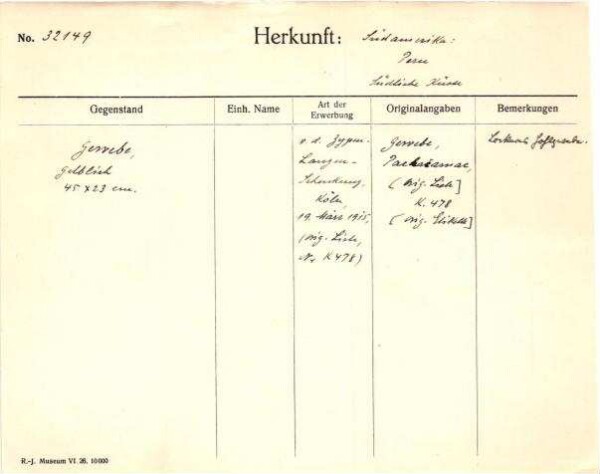 No. 32149
Herkunft: Südamerika:
Peru
Südliche Küste
Gegenstand
Einh. Name
Art der
Erwerbung
Originalangaben
Bemerkungen
Gewebe,
Gelblich
45 x 23 cm.
v. d. Zypen-
Langen-
Schenkung,
Köln,
19. März 1915,
(orig. Liste,
No K 478)
Gewebe,
Pachacamac,
(orig. Liste]
K. 478
(orig. Etikett]
R.-J. Museum VI. 26. 10000